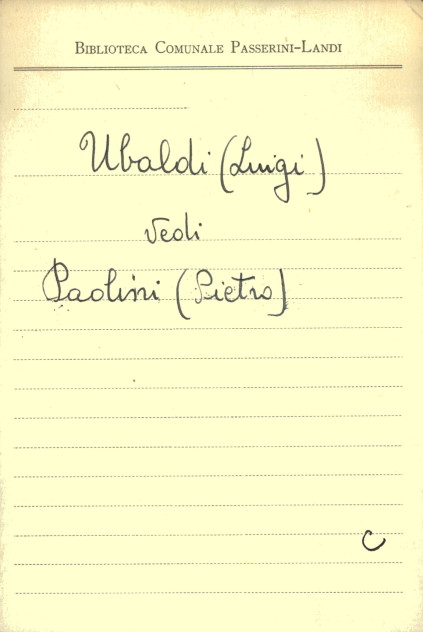 BIBLIOTECA COMUNALE PASSERINI-LANDI
Ubaldi (Luigi)
vedi
Paolini (Pietro)
C